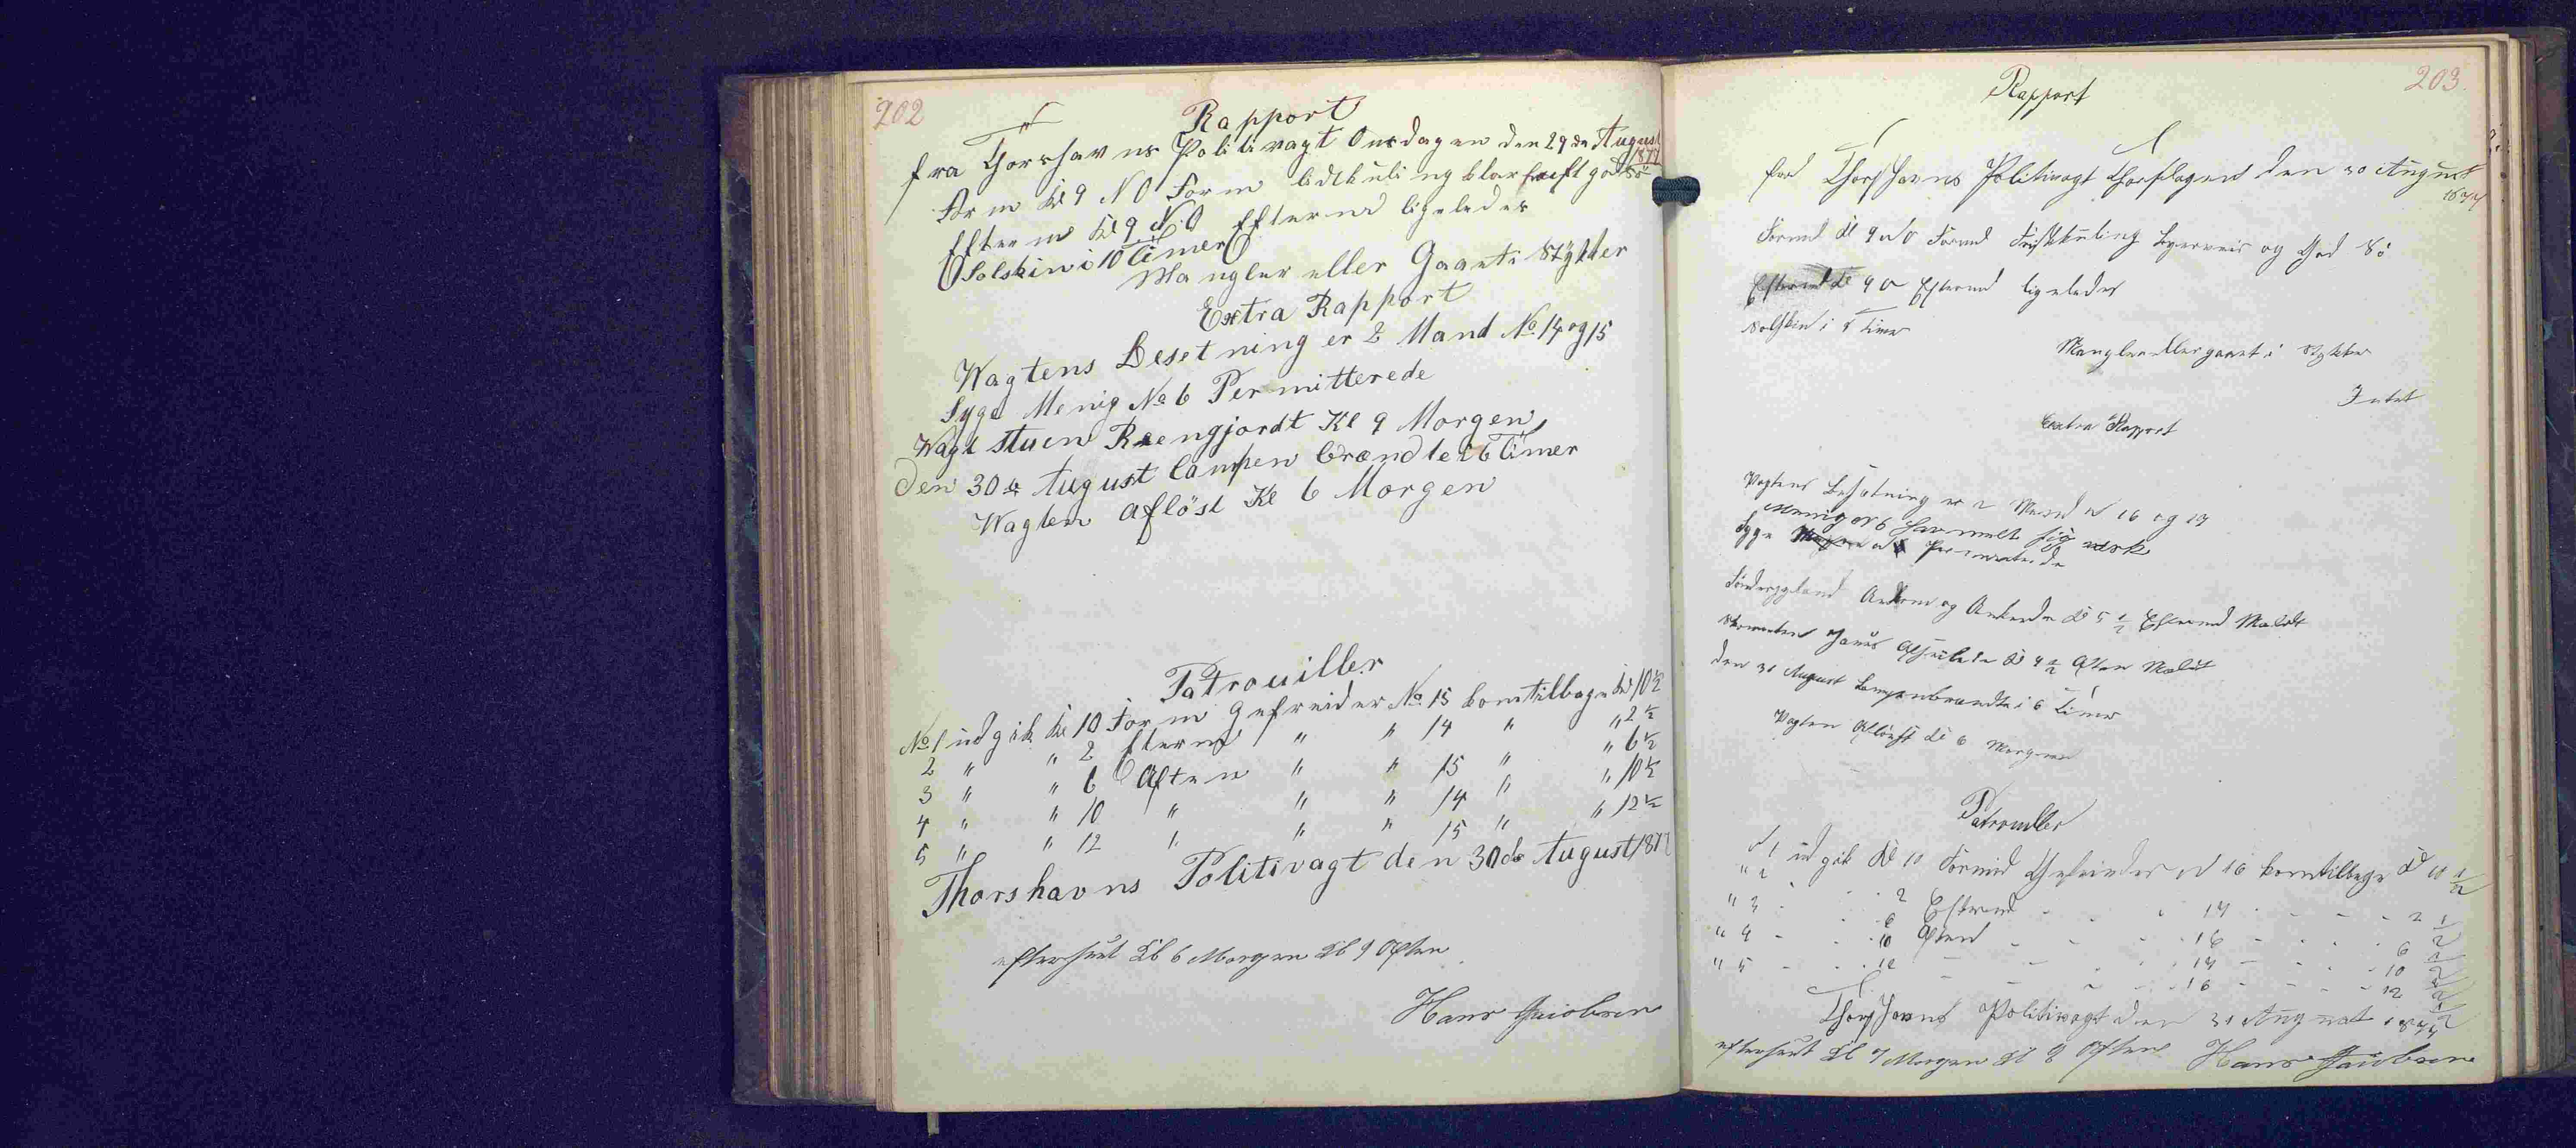 202
Rapport
fra Thorshavns Politivagt Onsdagen den 29de August
1877
Form Kl 9 N O Form lidtkuling klarluft god Sö
Efterm Kl 9 N.O Efterm ligeledes
Solskin i 10 Timer
Mangler eller Gaaet i Stykker
Extra Rapport
Wagtens Besetning er 2 Mand No. 14 og 15
Syge Menig No 6 Permitterede
Wagt stuen Reengjordt Kl 9 Morgen
Den 30te August lampen brændte i 6 Timer
Wagten aflöst Kl 6 Morgen
Patrouiller
No 1 udgik Kl 10 Form Gefreider No. 15 kom tilbage Kl 10½
2 " " 2 Efterm " " 14 " " 2½
3 " " 6 Aften " " 15 " " 6½
4 " " 10 " " " 14 " " 10½
5 " " 12 " " " 15 " " 12½
Thorshavns Politivagt den 30de August 1877
efterseet Kl 6 Morgen Kl 9 Aften
Hans Jacobsen
203.
Rapport
fra Thorshavns Politivagt Thorsdagen den 30 August
1877
Formd Kl 9 N O Formd Friskkuling og God Sö
Eftermd Kl 9 O Eftermd ligeledes
Solskin i Timer
Mangler eller gaaet i Stykker
Intet
Extra Rapport
Vagtens Besætning er 2 Mand N 16 og 17
Menig N 6 har melt sig rask
Syge Permiterede
Kl 5 ½ Eftermd Meldt
Kl 9 ½ Aften Meldt
den 31 August Lampen brændte i 6 Timer
Vagten Aflöst Kl 6 Morgen
Patrouller
N 1 udgik Kl 10 Formid Gefreider N 16 kom tilbage Kl 10 ½
" 2 - - 2 Eftermd - - 17 - - - 2 ½
" 3 - - 6 Aften - - 16 - - - 6 ½
" 4 - - 10 - - - 17 - - - 10 ½
" 5 - - 12 - - - 16 - - - 12 ½
Thorshavns Politivagt den 31 August 1877
efterseet Kl 7 Morgen Kl 8 Aften Hans Jacobsen